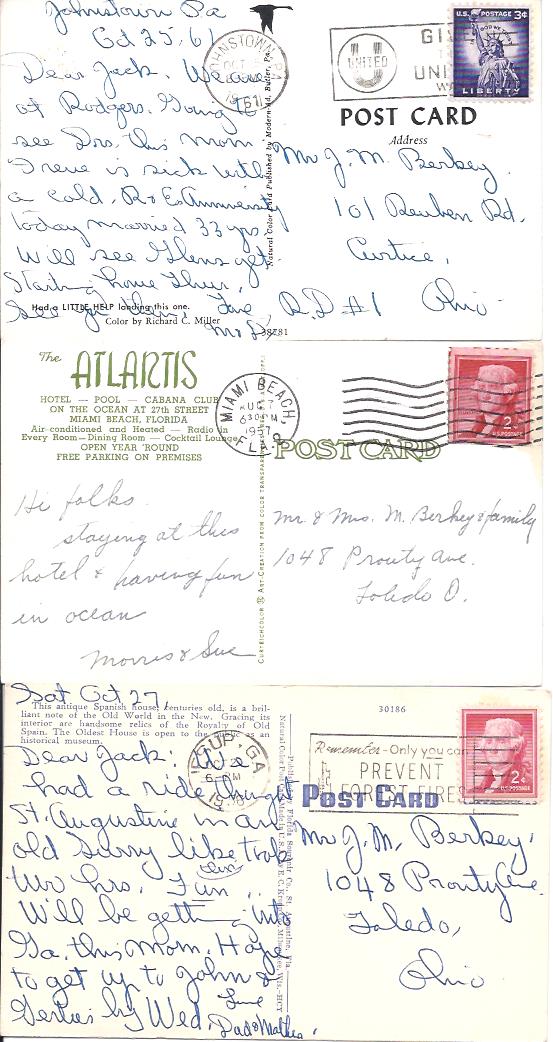 Johnstown Pa
Oct 25, 61
Dear Jack. We are
at Rodgers. Going to
see Drs. this morn.
Irene is sick with
a cold. R & Es Anniversity
today married 33 yrs.
Will see Glens yet.
Starting home Thur.
See you then, Love
Mr D
Had a LITTLE HELP landing this one.
Color by Richard C. Miller
38781
Natural Color Card Published by Modern-Ad, Butler, Pa.
JOHNSTOWN, PA
OCT
1961
UNITED
GIVE
THE
UNITED
WAY
U.S. POSTAGE 3¢
IN GOD WE TRUST
LIBERTY
POST CARD
Address
Mr J. M. Berkey
101 Reuben Rd.
Curtice,
R.D #1 Ohio
The
ATLANTIS
HOTEL — POOL — CABANA CLUB
ON THE OCEAN AT 27th STREET
MIAMI BEACH, FLORIDA
Air-conditioned and Heated — Radio in
Every Room — Dining Room — Cocktail Lounge
OPEN YEAR 'ROUND
FREE PARKING ON PREMISES
CURTEICHCOLOR ART-CREATION FROM COLOR TRANSPARENCY
MIAMI BEACH,
AUG 7
630 PM
1957
FLA.
2¢
U.S. POSTAGE
POST CARD
Hi folks
staying at this
hotel & having fun
in ocean
Morris & Sue
Mr. & Mrs. M. Berkey & family
1048 Prouty Ave.
Toledo O.
Sat Oct 27
This antique Spanish house, centuries old, is a bril-
liant note of the Old World in the New. Gracing its
interior are handsome relics of the Royalty of Old
Spain. The Oldest House is open to the public as an
historical museum.
30186
JESUP, GA
6 PM
Remember - Only you can
PREVENT
FOREST FIRES
2¢
U.S. POSTAGE
POST CARD
Dear Jack: We
had a ride through
St. Augustine in an
old Surry like trap
two hrs. Fun.
Will be getting into
Ga. this morn. Hope
to get up to John &
Gerties by Wed. Love
Dad &
Mr J. M. Berkey
1048 Prouty Ave.
Toledo,
Ohio